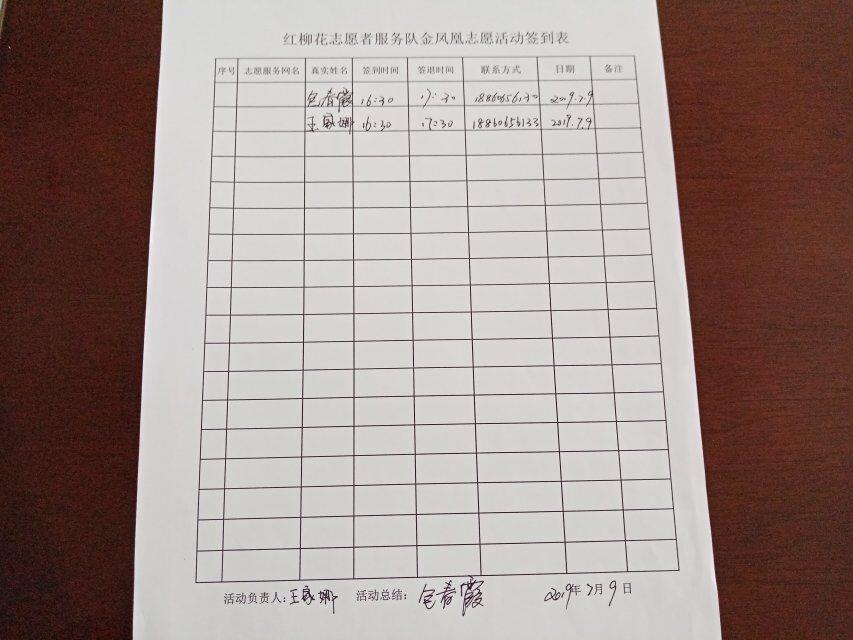 红柳花志愿者服务队金凤凰志愿活动签到表
序号 志愿服务网名 真实姓名 签到时间 签退时间 联系方式 日期 备注
包春霞 16:30 17:30 18860656130 2019.7.9
王家娜 16:30 17:30 18860656133 2019.7.9
活动负责人:王家娜 活动总结: 包春霞 2019年7月9日